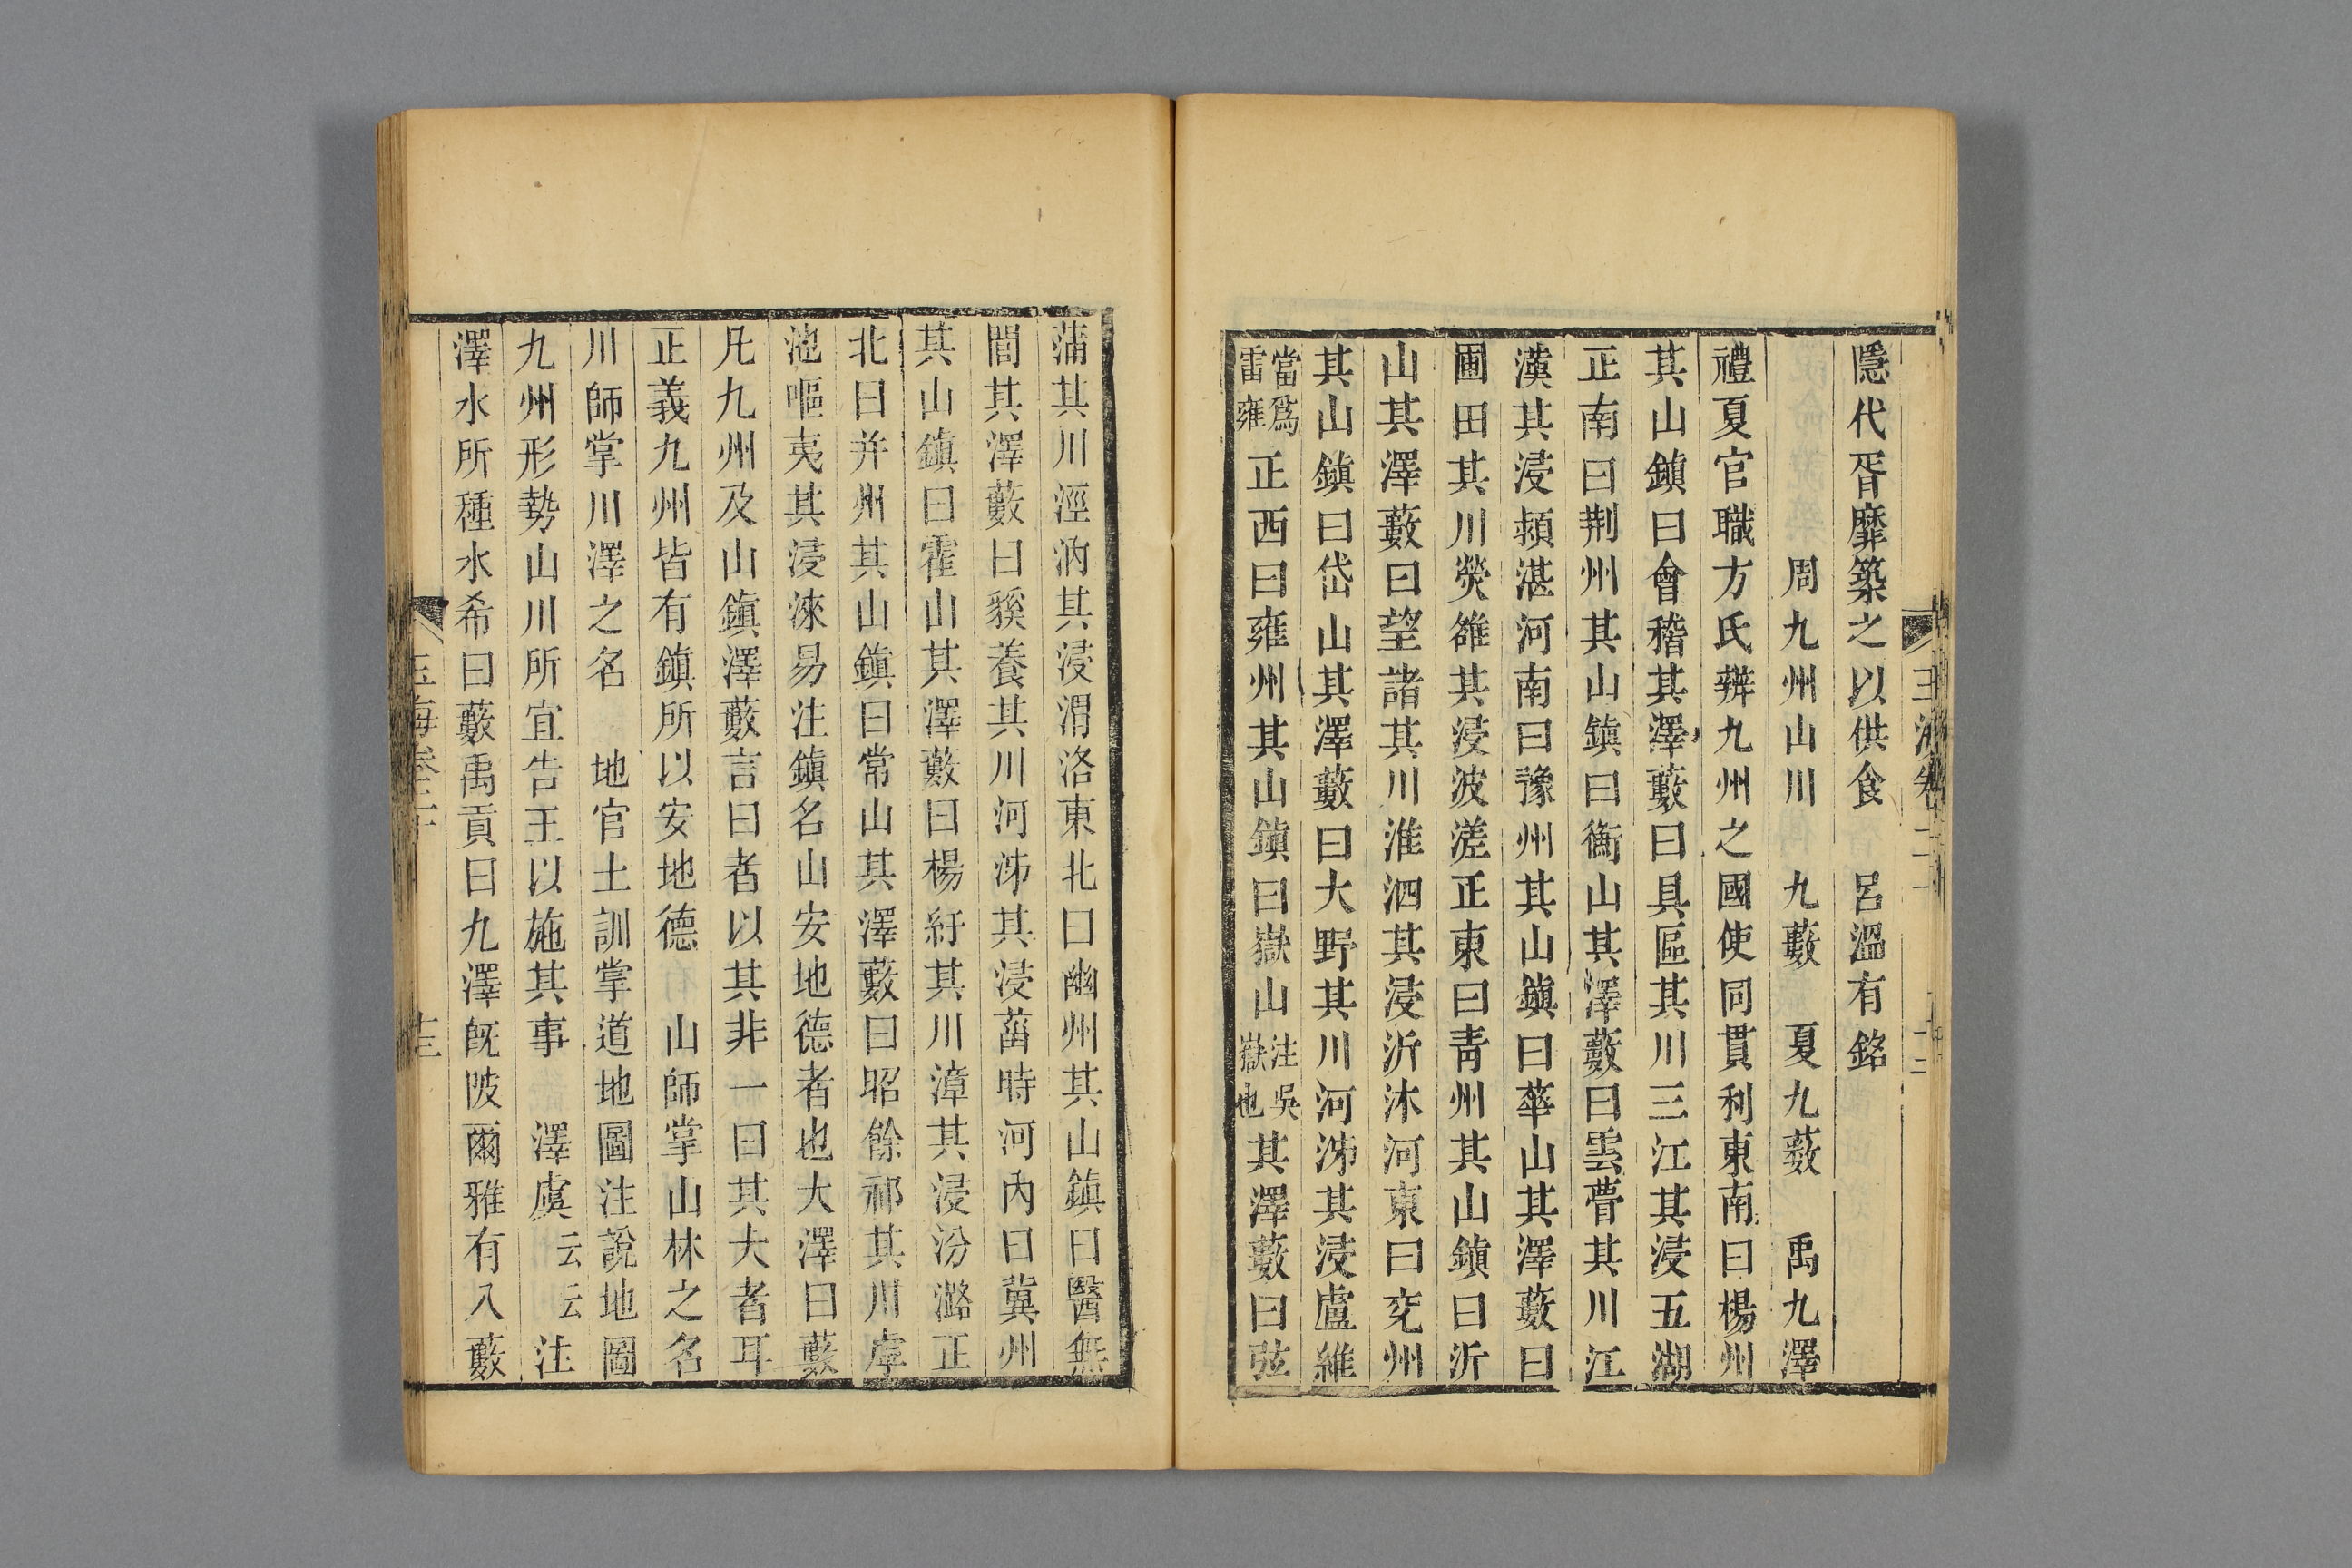 隱代胥靡築之以供食　呂溫有銘
周九州山川　九藪　夏九藪　禹九澤
禮夏官職方氏辨九州之國使同貫利東南曰楊州
其山鎮曰會稽其澤藪曰具區其川三江其浸五湖
正南曰荆州其山鎮曰衡山其澤藪曰雲瞢其川江
漢其浸潁湛河南曰豫州其山鎮曰華山其澤藪曰
圃田其川熒雒其浸波溠正東曰青州其山鎮曰沂
山其澤藪曰望諸其川淮泗其浸沂沭河東曰兗州
其山鎮曰岱山其澤藪曰大野其川河泲其浸盧維
當爲雷雍正西曰雍州其山鎮曰嶽山注吳嶽也其澤藪曰弦
蒲其川涇汭其浸渭洛東北曰幽州其山鎮曰醫無
閭其澤藪曰貕養其川河泲其浸菑時河內曰冀州
其山鎮曰霍山其澤藪曰楊紆其川漳其浸汾潞正
北曰并州其山鎮曰常山其澤藪曰昭餘祁其川虖
池嘔夷其浸淶易注鎮名山安地德者也大澤曰藪
凡九州及山鎮澤藪言曰者以其非一曰其大者耳
正義九州皆有鎮所以安地德　山師掌山林之名
川師掌川澤之名　地官土訓掌道地圖注說地圖
九州形勢山川所宜告王以施其事　澤虞云云注
澤水所種水希曰藪禹貢曰九澤旣陂爾雅有八藪
玉海卷二十
十三